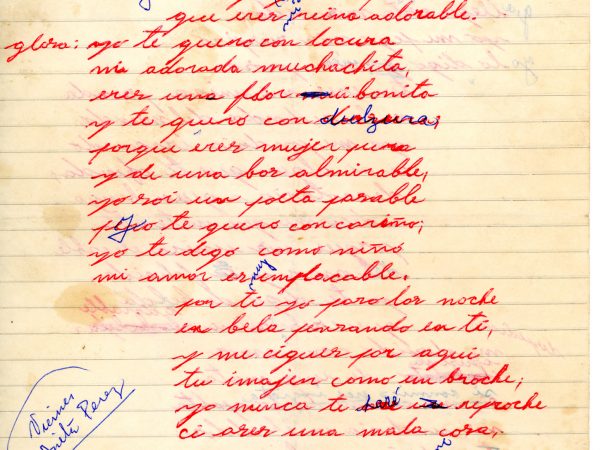 que eres reina adorable.
glosa: yo te quiero con locura
mi adorada muchachita,
eres una flor mui bonita
y te quiero con dulzura;
porque eres mujer pura
y de una bos almirable,
yo soi un poeta pasable
yo te quiero con cariño;
yo te digo como niño
mi amor es muy implacable.
por ti yo paso las noche
en bela pensando en ti,
y me cigues por aqui
tu imajen como un broche;
yo nunca te haré reproche
ci azes una mala cosa,
Viernes
Perez